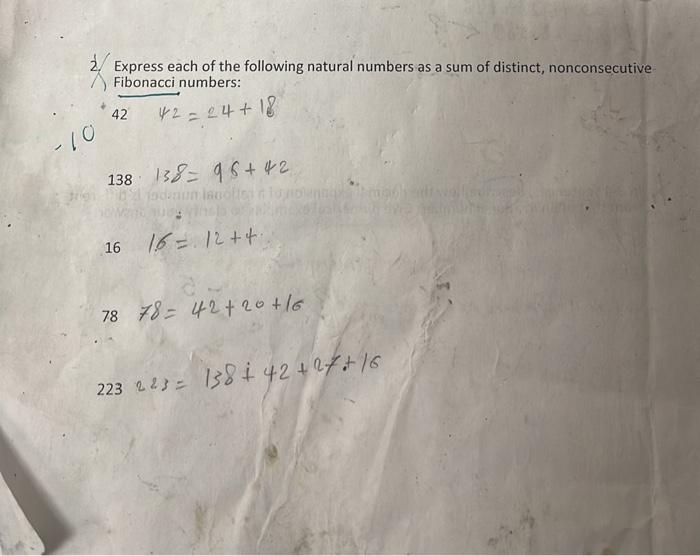 2. Express each of the following natural numbers as a sum of distinct, nonconsecutive
Fibonacci numbers:
42 42 = 24 + 18
-10
138 138 = 96 + 42
16 16 = 12 + 4
78 78 = 42 + 20 + 16
223 223 = 138 + 42 + 27 + 16